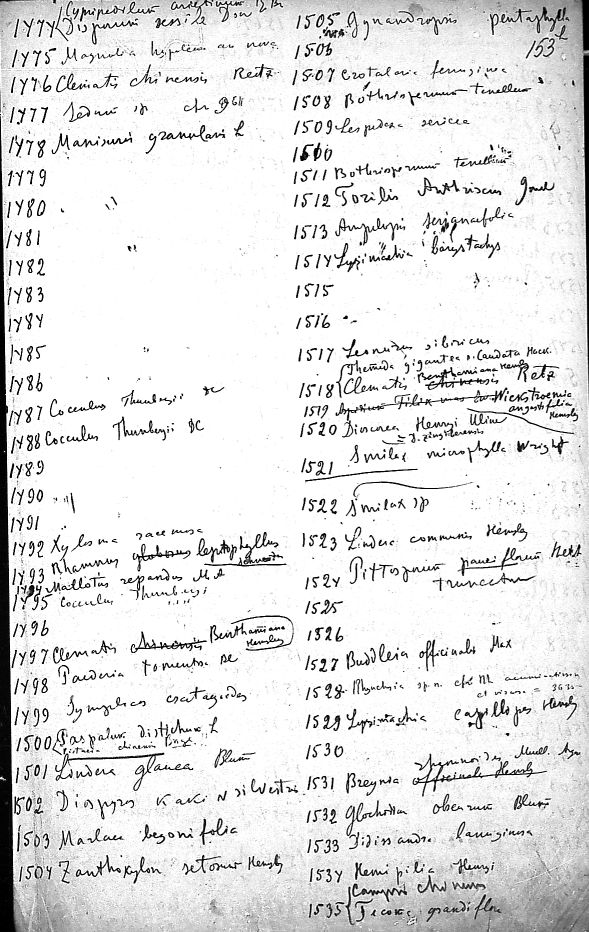 Cypripedilum arietinum R Br
1474 Disporum sessile Don
1475 Magnolia hypoleuca
1476 Clematis chinensis Retz
1477 Sedum sp cfr 964
1478 Manisuris granularis L
1479
1480 "
1481 "
1482
1483
1484
1485 "
1486
1487 Cocculus Thunbergii DC
1488 Cocculus Thunbergii DC
1489
1490 "
1491
1492 Xylosma racemosa
1493 Rhamnus globosus leptophyllus Schneid
1494 Mallotus repandus M A
1495 Cocculus Thunbergi
1496
1497 Clematis chinensis Benthamiana Hemsley
1498 Paederia tomentosa Bl
1499 Symplocos crataegoides
1500 Paspalum distichum L
Pistacia chinensis Bunge
1501 Lindera glauca Blum
1502 Diospyros Kaki v silvestris
1503 Marlea begonifolia
1504 Zanthoxylon setosum Hemsly
1505 Gynandropsis pentaphylla L
153
1506
1507 Crotalaria ferruginea
1508 Bothrispermum tenellum
1509 Lespedeza sericea
1510
1511 Bothrispermum tenellum
1512 Torilis Anthriscus Gmel
1513 Ampelopsis serjanaefolia
1514 Lysimachia barystachys
1515
1516
1517 Leonurus sibiricus
Themeda gigantea v. Caudata Hack
1518 Clematis chinensis Benthamiana Hemsly Retz
1519 Filix mas Wickstroemia angustifolia Hemsly
1520 Dioscorea Henryi Uline
= D. zingiberensis
1521 Smilax microphylla Wright
1522 Smilax sp
1523 Lindera communis Hemsly
1524 Pittosporum pauciflorum Hook
truncatum
1525
1526
1527 Buddleia officinalis Max
1528 Rhynchosia sp n. cfr M. acuminatissima
1529 Lysimachia capillipes Hemsly
1530
1531 Breynia officinalis Hemsly rhamnoides Muell Arg
1532 Glochidion obscurum Blum
1533 Didissandra lanuginosa
1534 Hemipilia Henryi
Campsis chinensis
1535 Tecoma grandiflora